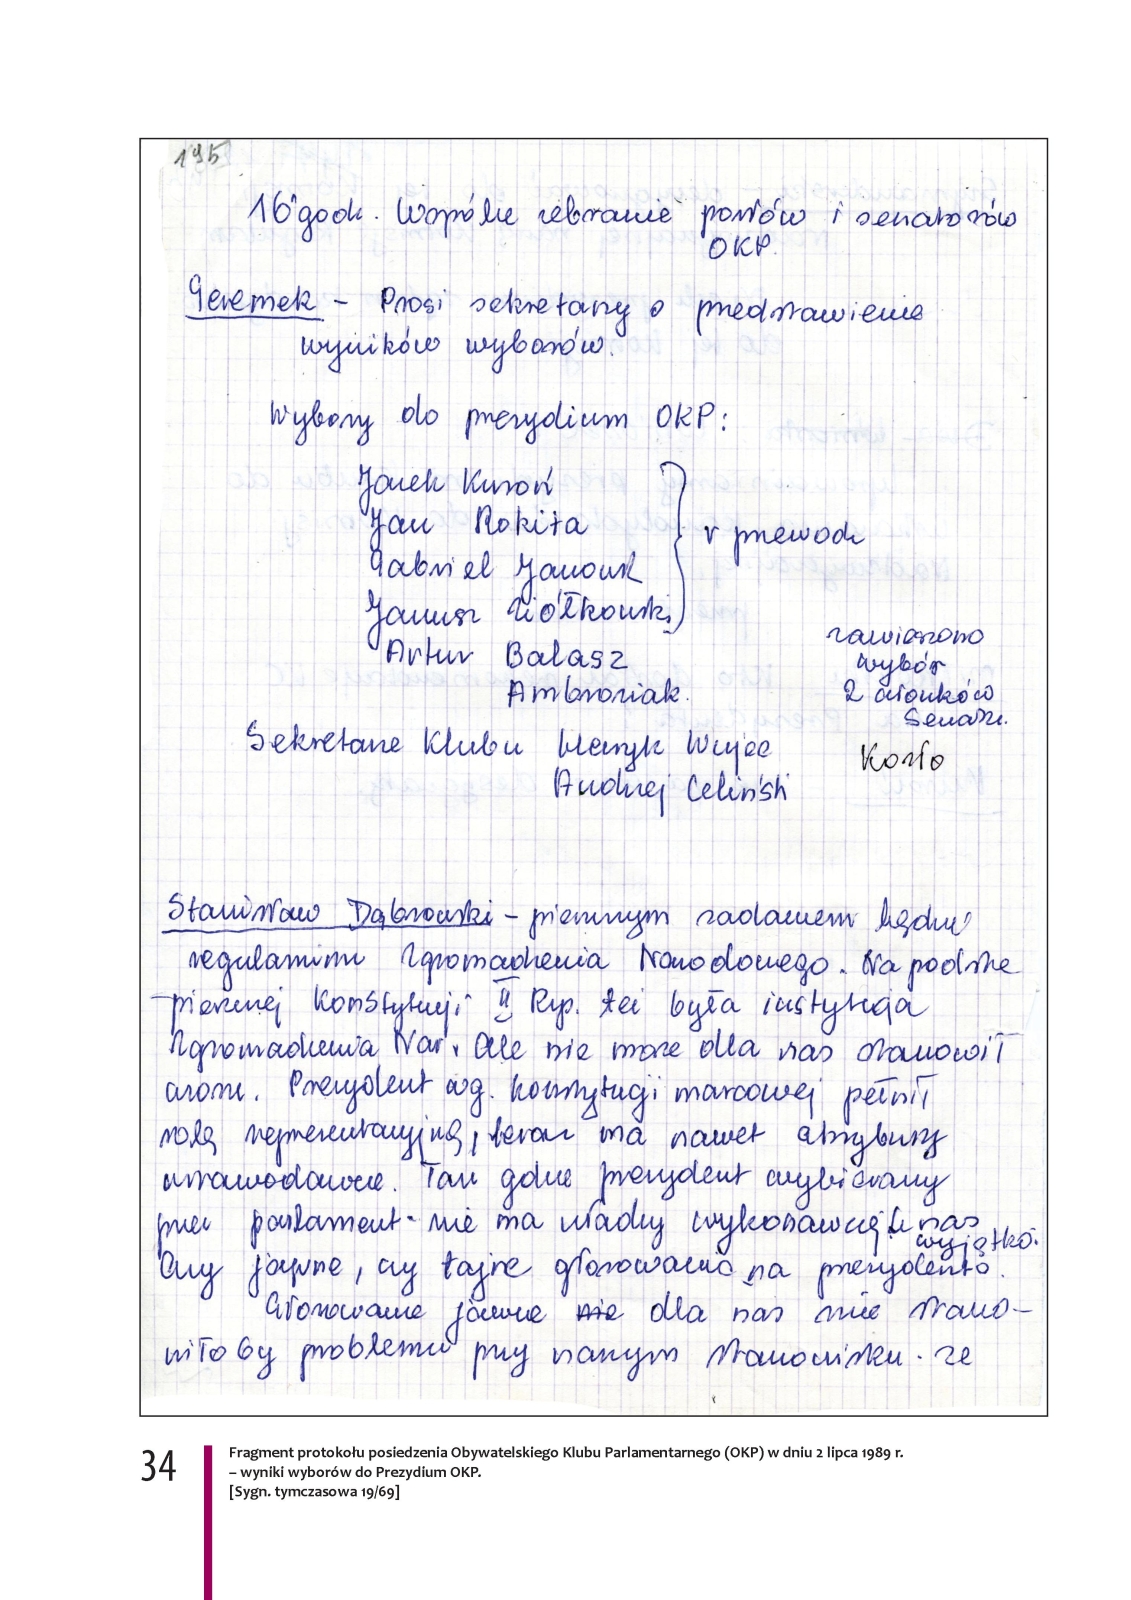 195
16 godz. Wspólne zebranie posłów i senatorów
OKP.
Geremek – Prosi sekretarzy o przedstawienie
wyników wyborów.
Wybory do prezydium OKP:
Jacek Kuroń
Jan Rokita
Gabriel Janowsk
Janusz Ziółkowski
v przewodn
Artur Balasz
Ambroziak.
zawieszono
wybór
2 członków
Senatu.
Sekretarze Klubu Henryk Wujec
Kozło
Andrzej Celiński
Stanisław Dąbrowski – pierwszym zadaniem będzie
regulaminu Zgromadzenia Narodowego. Na podstawie
pierwszej Konstytucji II Rzp. też była instytucja
Zgromadzenia Nar. Ale nie może dla nas stanowić
wzoru. Prezydent wg. konstytucji marcowej pełnił
rolę reprezentacyjną, teraz ma nawet atrybuty
ustawodawcze. Tam gdzie prezydent wybierany
przez parlament - nie ma władzy wykonawczej. U nas
wyjątko.
Czy jawne, czy tajne głosowanie na prezydenta.
Głosowanie jawne nie dla nas nie stano-
wiłoby problemu przy naszym stanowisku. że
34
Fragment protokołu posiedzenia Obywatelskiego Klubu Parlamentarnego (OKP) w dniu 2 lipca 1989 r.
– wyniki wyborów do Prezydium OKP.
[Sygn. tymczasowa 19/69]